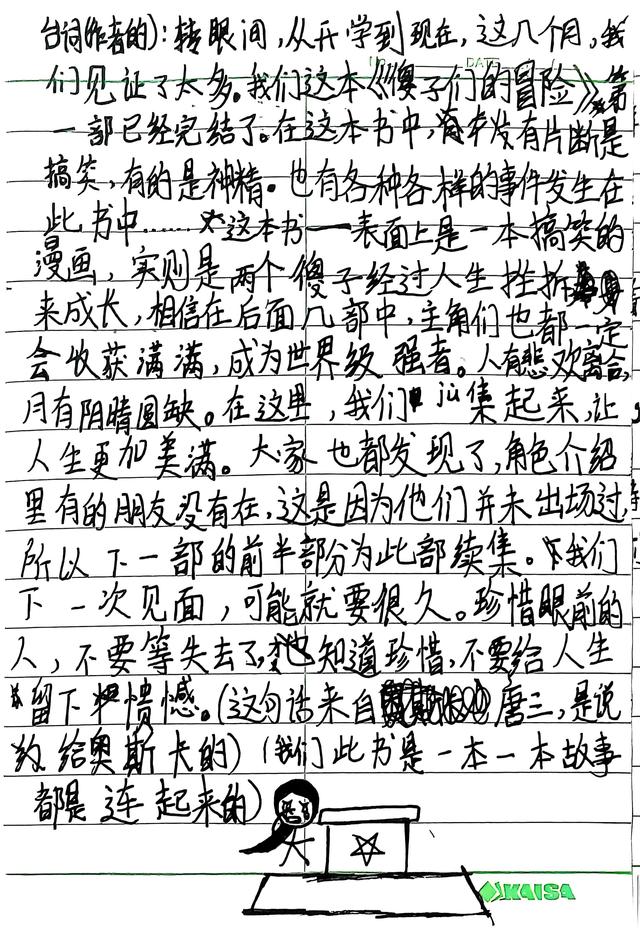 台词(作者的)：转眼间，从开学到现在，这几个月，我
No. DATE
们见证了太多。我们这本《傻子们的冒险》第
一部已经完结了。在这本书中，有片断是
搞笑，有的是神精。也有各种各样的事件发生在
此书中……这本书一表面上是一本搞笑的
漫画，实则是两个傻子经过人生挫折
来成长，相信在后面几部中，主角们也都一定
会收获满满，成为世界级强者。人有悲欢离合，
月有阴晴圆缺。在这里，我们jù集起来，让
人生更加美满。大家也都发现了，角色介绍
里有的朋友没有在，这是因为他们并未出场过，
所以下一部的前半部分为此部续集。我们
下一次见面，可能就要很久。珍惜眼前的
人，不要等失去了，也知道珍惜，不要给人生
留下憾。(这句话来自唐三，是说
给奥斯卡的)(我们此书是一本一本故事
都是连起来的)
KAISA